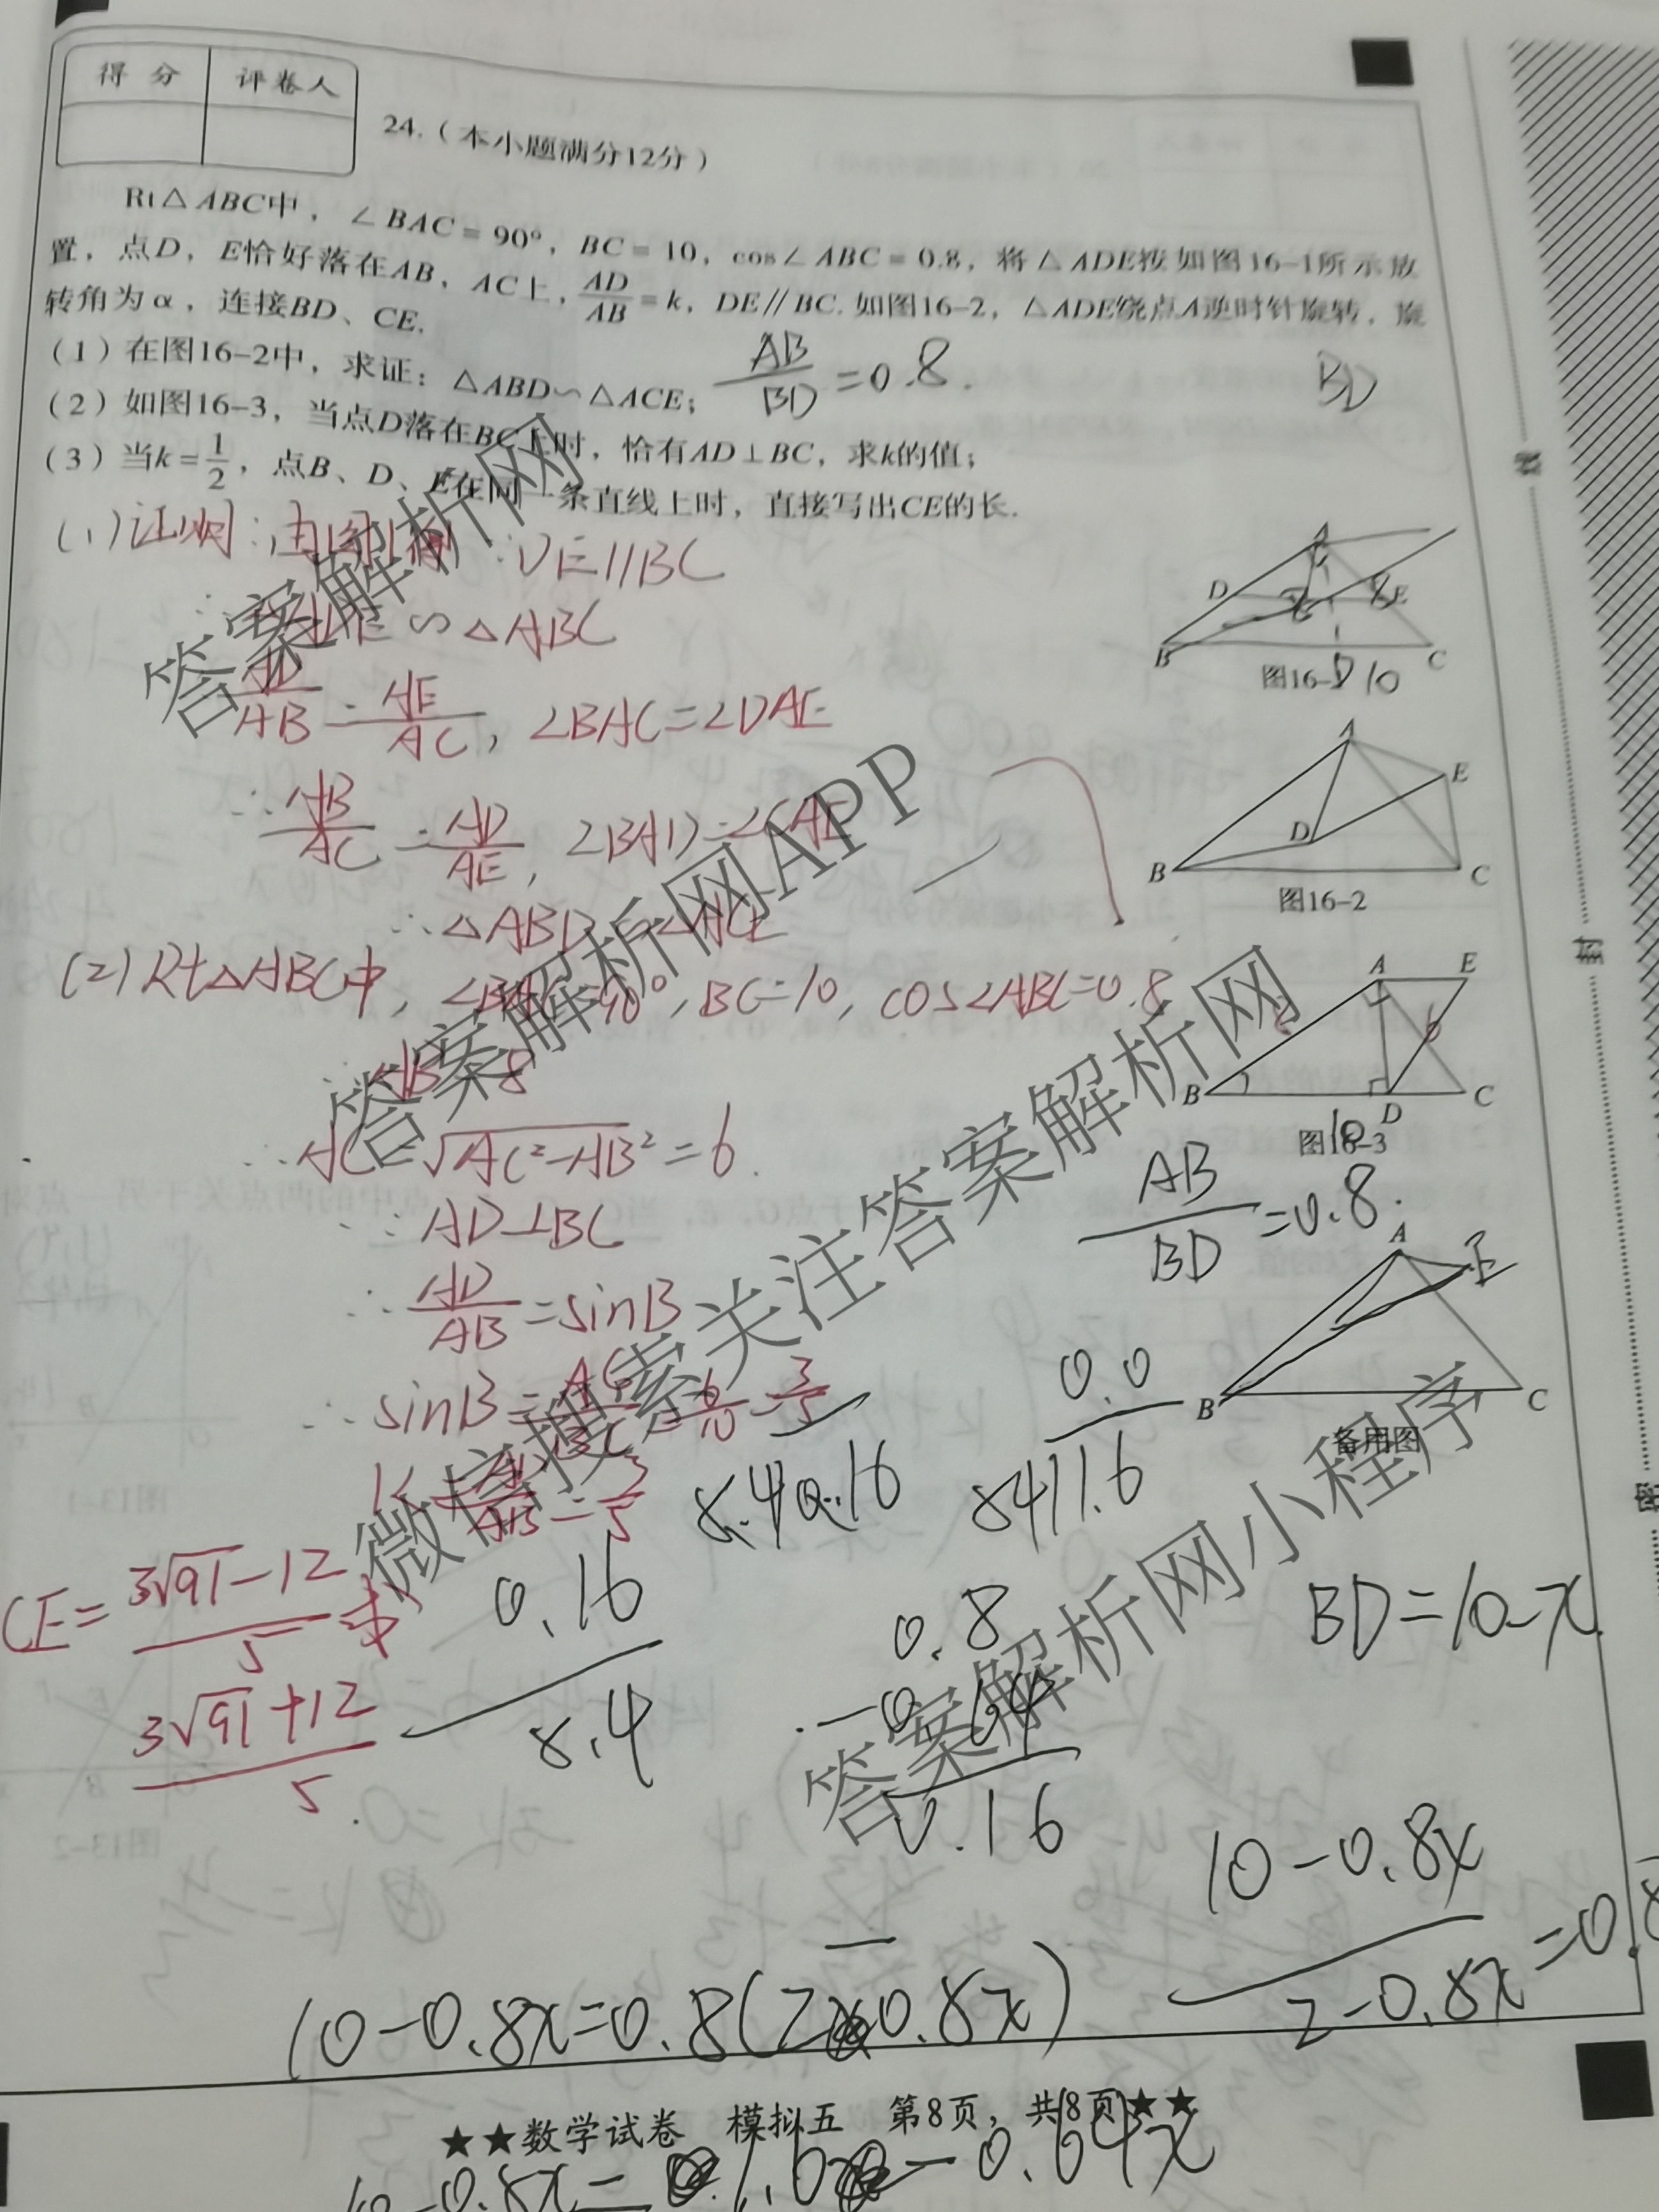 得 分 评卷人
24.（本小题满分12分）
Rt△ABC中，∠BAC=90°，BC=10，cos∠ABC=0.8，将△ADE按如图16-1所示放
置，点D，E恰好落在AB，AC上，AD/AB=k，DE∥BC.如图16-2，△ADE绕点A逆时针旋转，旋
转角为α，连接BD、CE.
（1）在图16-2中，求证：△ABD∽△ACE；
AB/BD=0.8.
BD
（2）如图16-3，当点D落在BC上时，恰有AD⊥BC，求k的值；
（3）当k=1/2，点B、D、E在同一条直线上时，直接写出CE的长.
(1)证明：由图1得 ∵DE∥BC
∽△ABC
AD/AB=AE/AC，∠BAC=∠DAE
∴AB/AC=AD/AE，∠BAD=∠CAE
∴△ABD∽△ACE
(2)Rt△ABC中，∠BAC=90°，BC=10，cos∠ABC=0.8
∴AB=8
∴AC=√AC²-AB²=6.
∵AD⊥BC
∴AD/AB=sinB
∴sinB=AC/BC=6/10=3/5
K=AD/AB=3/5
CE=3√91-12/5或
3√91+12/5.
A
D
E
B
C
图16-
D 10
A
E
D
B
C
图16-2
A
E
6
B
D
C
图16-3
10
AB/BD=0.8.
A
E
B
C
备用图
0.0
8.4
0.16
8.4
1.6
0.16
8.4
0.8
-0.64
0.16
BD=10-x
10-0.8x/2-0.8x=0.8
10-0.8x=0.8(2-0.8x)
★★数学试卷 模拟五 第8页，共8页★★
-0.64x
答案解析网
答案解析网APP
微信搜索关注答案解析网
答案解析网小程序